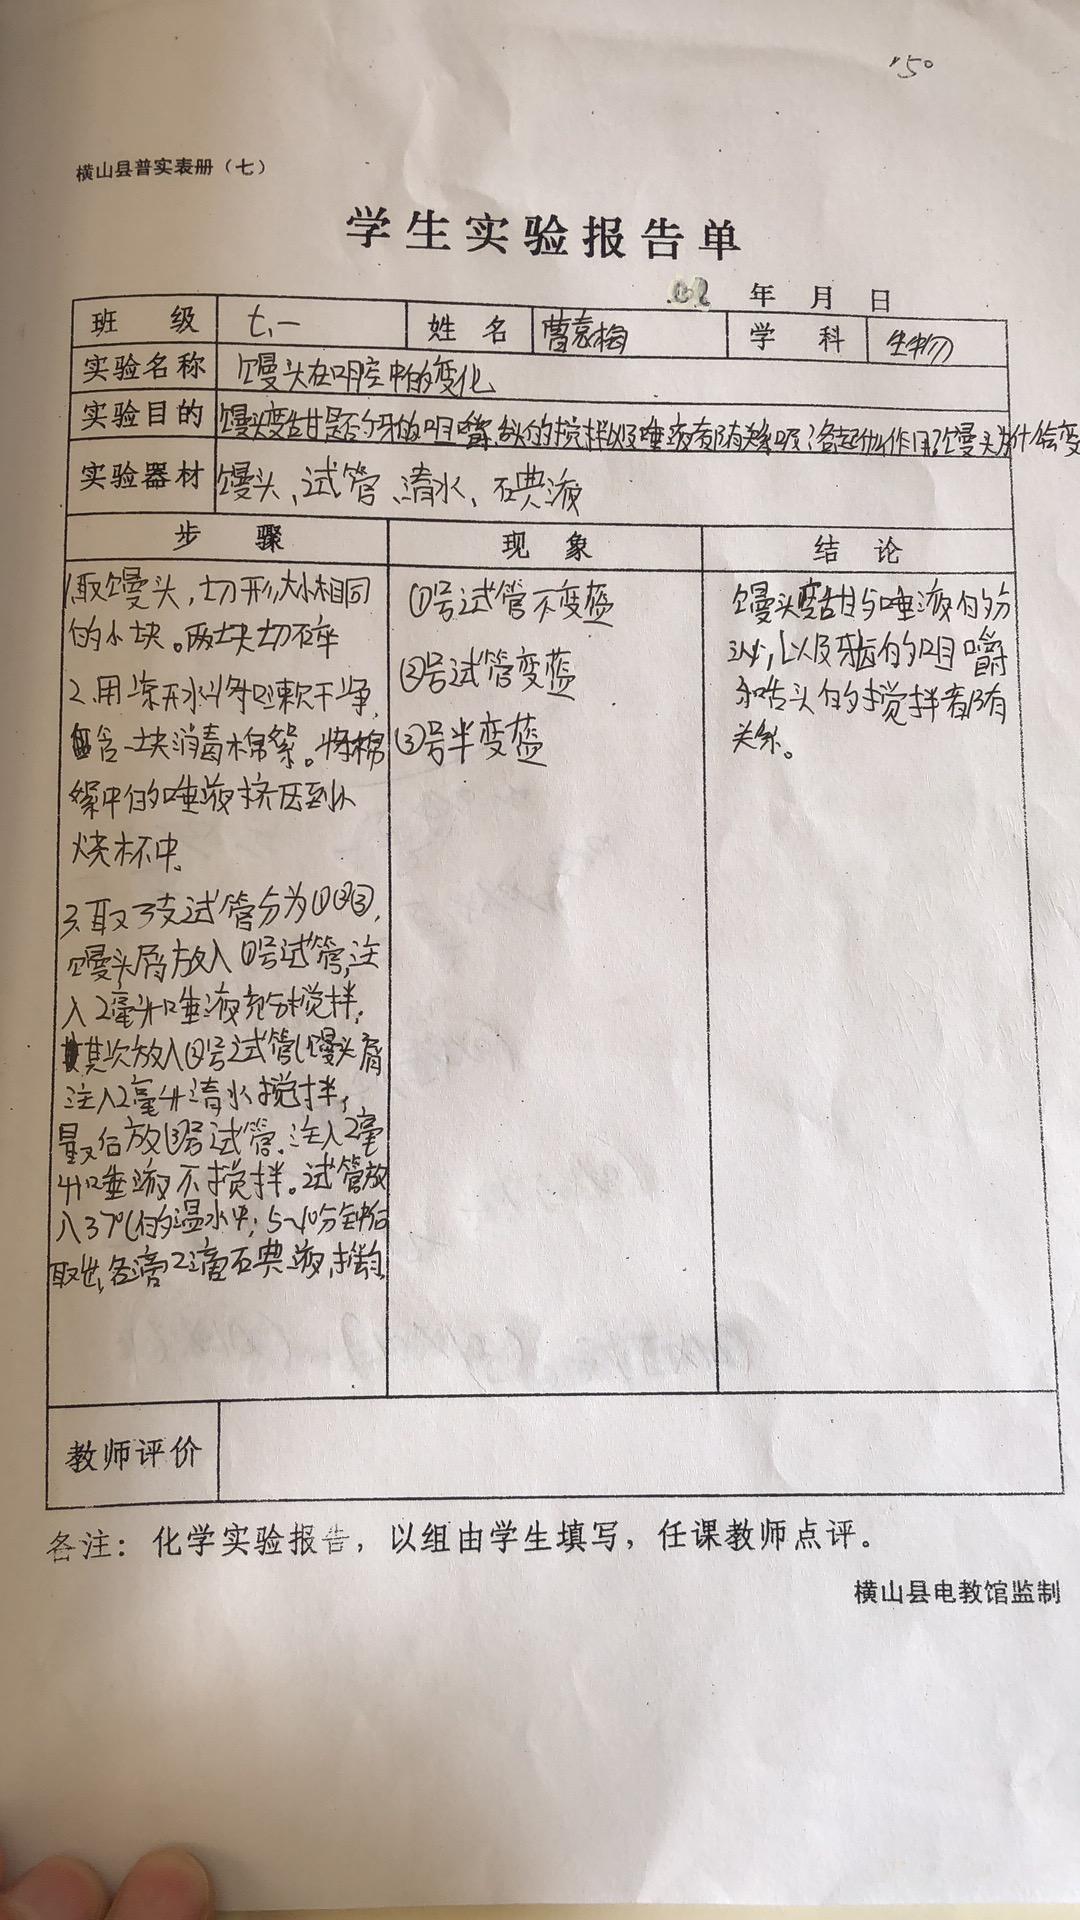 '50
横山县普实表册（七）
学生实验报告单
年 月 日
班 级 七、一 姓 名 曹 梅 学 科 生物
实验名称 馒头在口腔中的变化
实验目的 馒头变甜是否与牙的咀嚼 的搅拌以及唾液都有关系呢？各起什么作用？馒头为什么会变
实验器材 馒头、试管、清水、碘液
步 骤 现 象 结 论
1.取馒头，切形大小相同
的小块。两块切碎
2.用凉开水将口漱干净，
含一块消毒棉絮。将棉
絮中的唾液挤压到小
烧杯中。
3.取3支试管分为①②③，
馒头屑放入①号试管，注
入2毫升唾液充分搅拌；
其次放入②号试管馒头屑
注入2毫升清水搅拌，
最后放③号试管.注入2毫
升唾液不搅拌。试管放
入37℃的温水中；5~10分钟后
取出，各滴2滴碘液，摇匀
①号试管不变蓝
②号试管变蓝
③号半变蓝
馒头变甜与唾液的分
泌，以及牙齿的咀嚼
和舌头的搅拌都有
关系。
教师评价
备注：化学实验报告，以组由学生填写，任课教师点评。
横山县电教馆监制